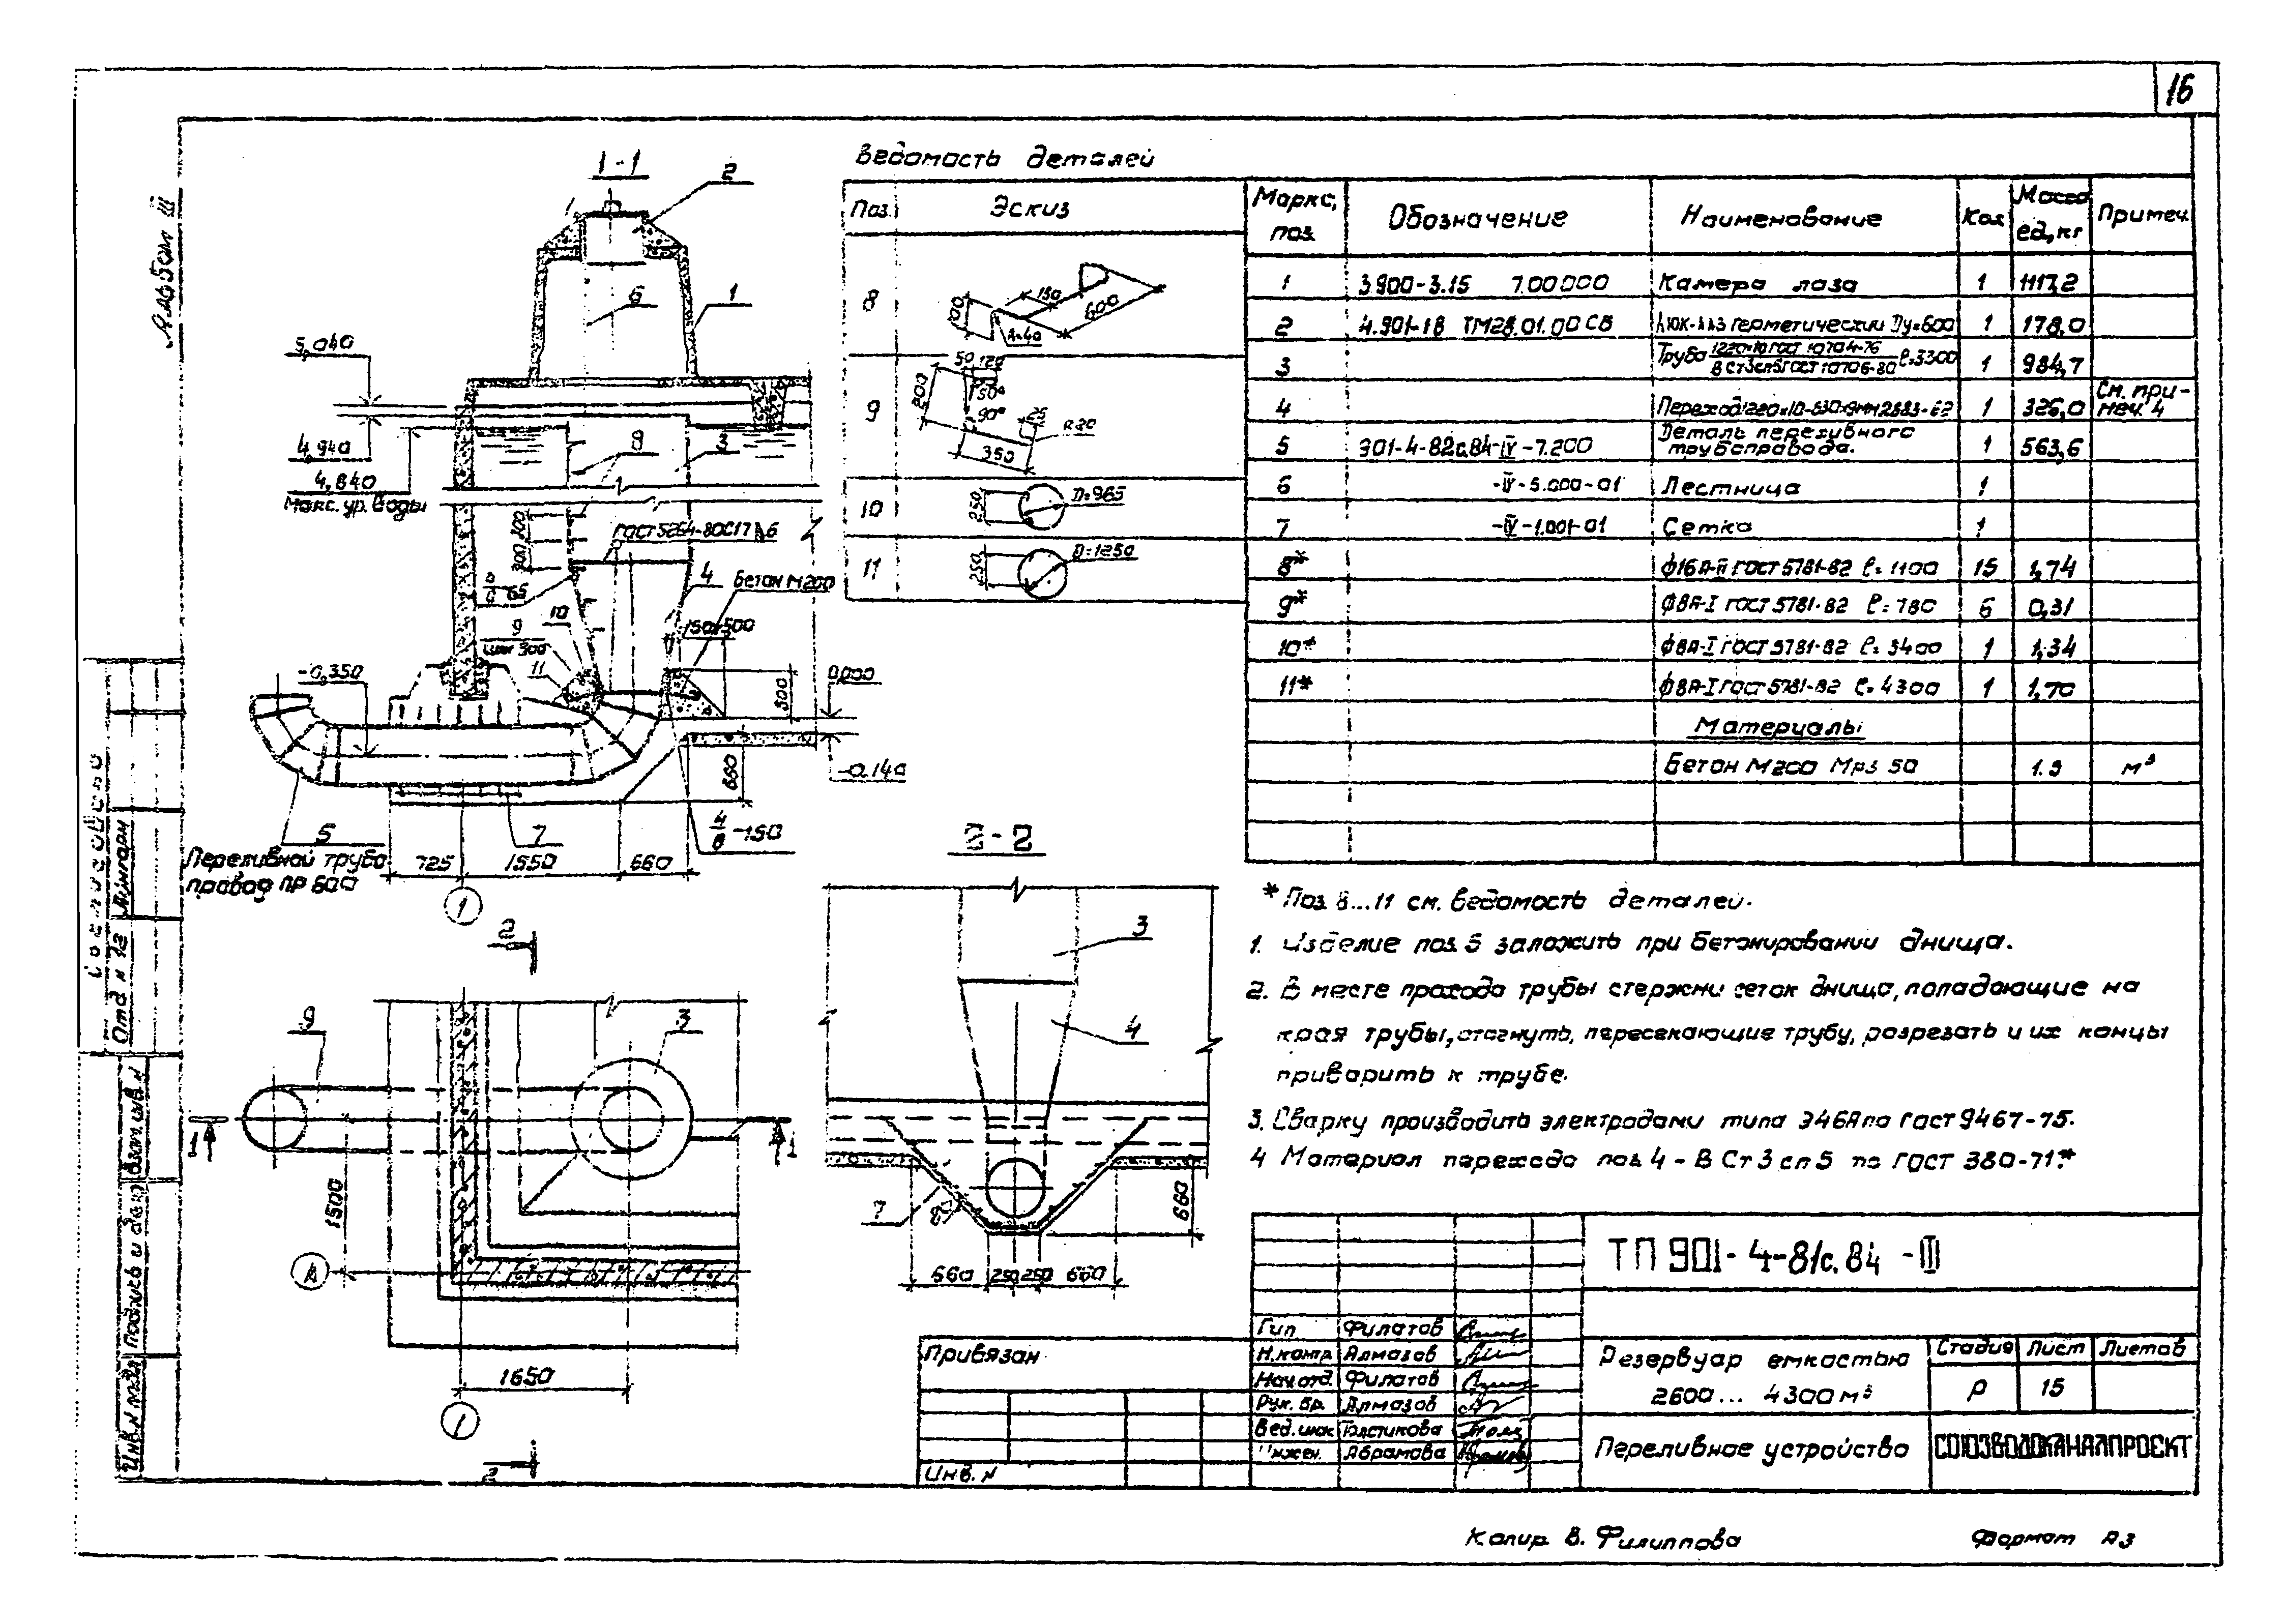 16
Альбом III
1-1
2
6
1
5,040
4,940
4,840
Макс. ур. воды
9
3
300 200
ГОСТ 5264-80 С17 6
4
Бетон М200
10
9
шаг 300
11
150 500
300
-0,350
0,000
-0,140
660
5
7
Переливной трубо
провод ПР 600
725
1550
660
4/8 -150
1
2
9
3
1
1
1500
А
1650
1
2
2-2
3
4
7
8
660
660 250 250 660
Ведомость деталей
Поз. Эскиз
8 100 150 600
9 50 120 200 50° 90° 25 R20 350
10 250 D=965
11 250 D=1250
Марка, поз. Обозначение Наименование Кол Масса ед, кг Примеч.
1 3.900-3.15 7.00000 Камера лаза 1 1117,2
2 4.901-18 ТМ28.01.00 СБ Люк-лаз герметический Ду=600 1 178,0
3 Труба 1220×10 ГОСТ 10704-76 / В Ст3сп5 ГОСТ 10706-80 ℓ=3300 1 984,7
4 Переход 1220×10-630×9 МН 2883-62 1 326,0 См. примеч. 4
5 901-4-82с.84-IV-7.200 Деталь переливного трубопровода. 1 563,6
6 -IV-5.000-01 Лестница 1
7 -IV-1.001-01 Сетка 1
8* ф16А-II ГОСТ 5781-82 ℓ=1100 15 1,74
9* ф8А-I ГОСТ 5781-82 ℓ=780 6 0,31
10* ф8А-I ГОСТ 5781-82 ℓ=3400 1 1,34
11* ф8А-I ГОСТ 5781-82 ℓ=4300 1 1,70
Материалы
Бетон М200 Мрз 50 1.9 м³
* Поз. 8...11 см. ведомость деталей.
1. Изделие поз. 5 заложить при бетонировании днища.
2. В месте прохода трубы стержни сеток днища, попадающие на
края трубы, отогнуть, пересекающие трубу, разрезать и их концы
приварить к трубе.
3. Сварку производить электродами типа Э46А по ГОСТ 9467-75.
4 Материал перехода поз. 4 - В Ст 3 сп 5 по ГОСТ 380-71*
ТП 901-4-81с.84 -III
Гип Филатов
Н.контр Алмазов
Нач.отд. Филатов
Рук. бр. Алмазов
Вед. инж Толстикова
Инжен. Абрамова
Привязан
Инв. N
Резервуар емкостью
2600... 4300 м³
Стадия Лист Листов
Р 15
Переливное устройство
СОЮЗВОДОКАНАЛПРОЕКТ
Копир. В. Филиппова
Формат А3
Согласовано
Инв. N подл. Подпись и дата Взам. инв. N